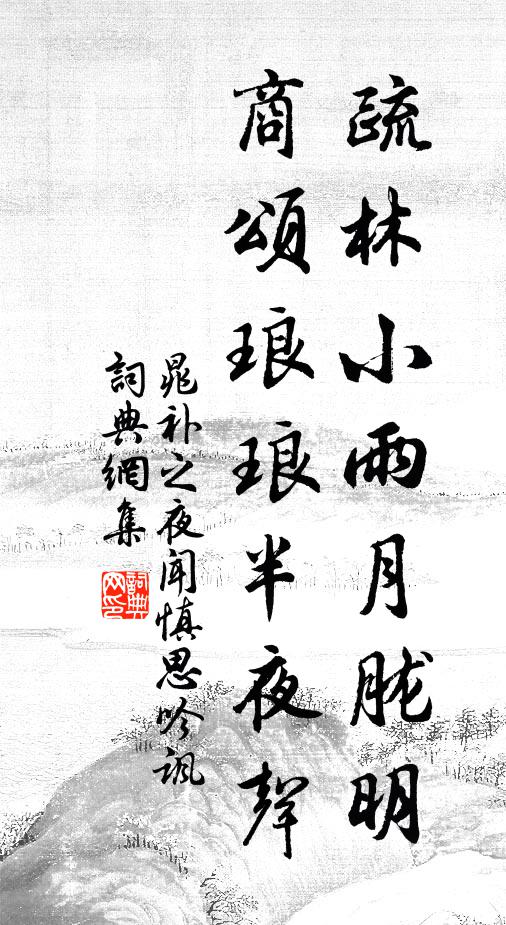 疏林小雨月胧明
商頌琅琅半夜聲
晁补之夜闻慎思吟諷
詞典網集
詞典网印